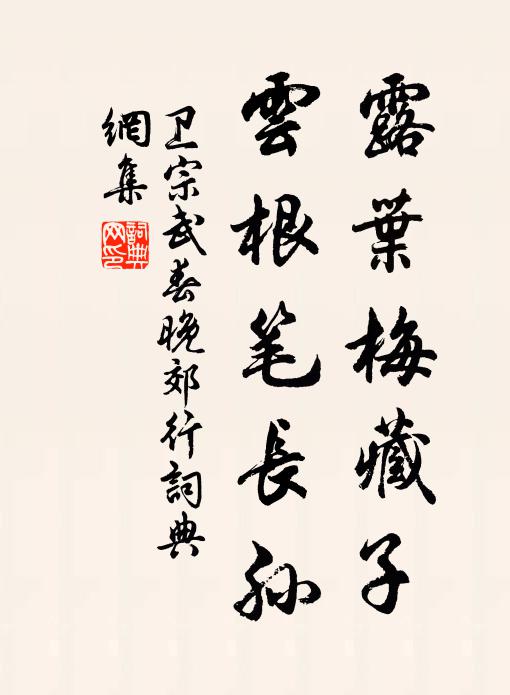 露葉梅藏子
雲根笔長孙
卫宗武春晚郊行詞典
網集
詞典
网印